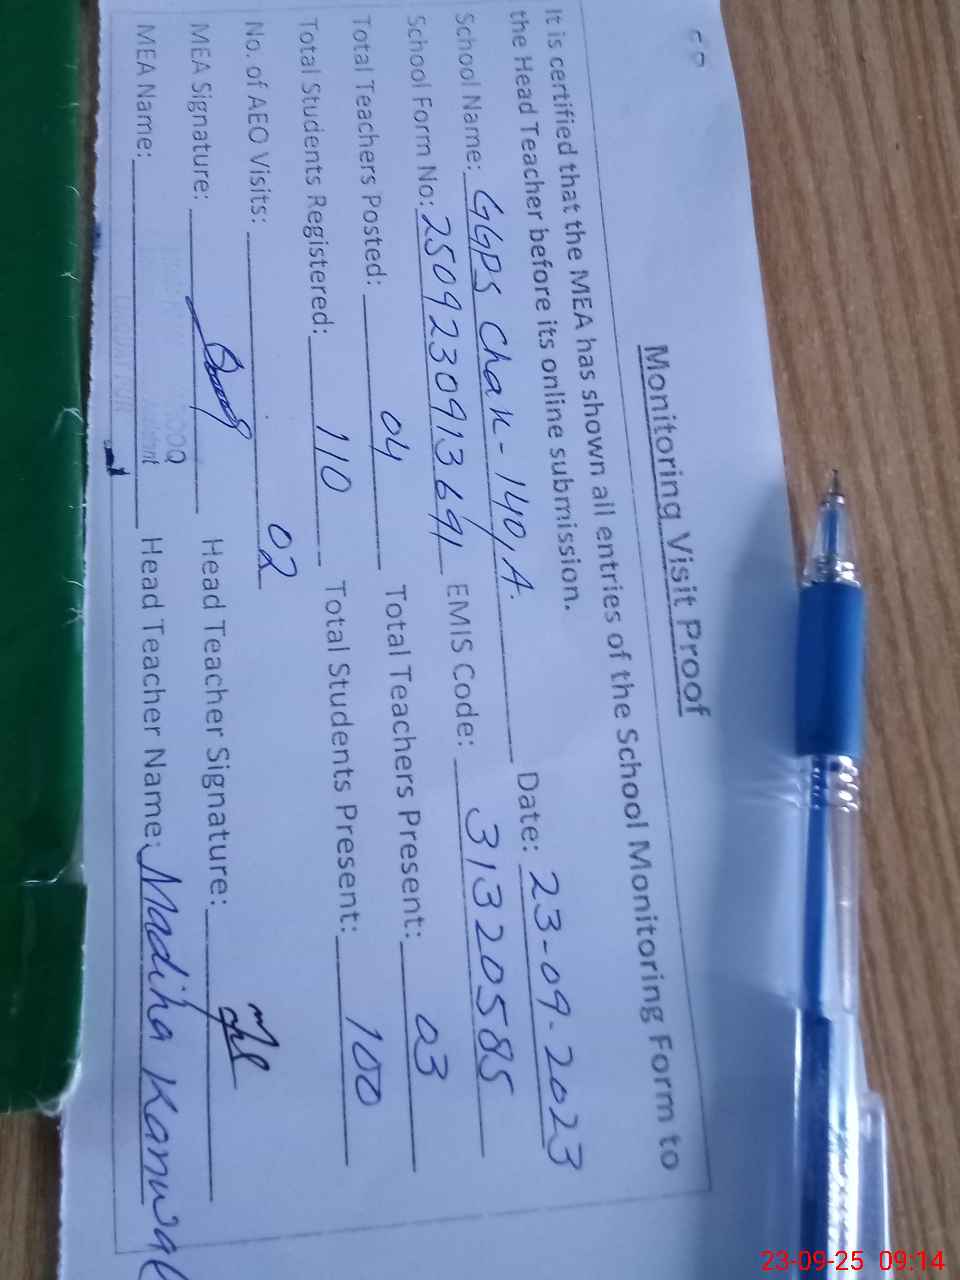 Monitoring Visit Proof
It is certified that the MEA has shown all entries of the School Monitoring Form to
the Head Teacher before its online submission.
School Name: GGPS Chak-140/A. Date: 23-09-2023
School Form No: 2509230913691 EMIS Code: 31320585
Total Teachers Posted: 04 Total Teachers Present: 03
Total Students Registered: 110 Total Students Present: 100
No. of AEO Visits: 02
MEA Signature: Head Teacher Signature:
MEA Name: Head Teacher Name: Madiha Kanwal
23-09-25 09:14